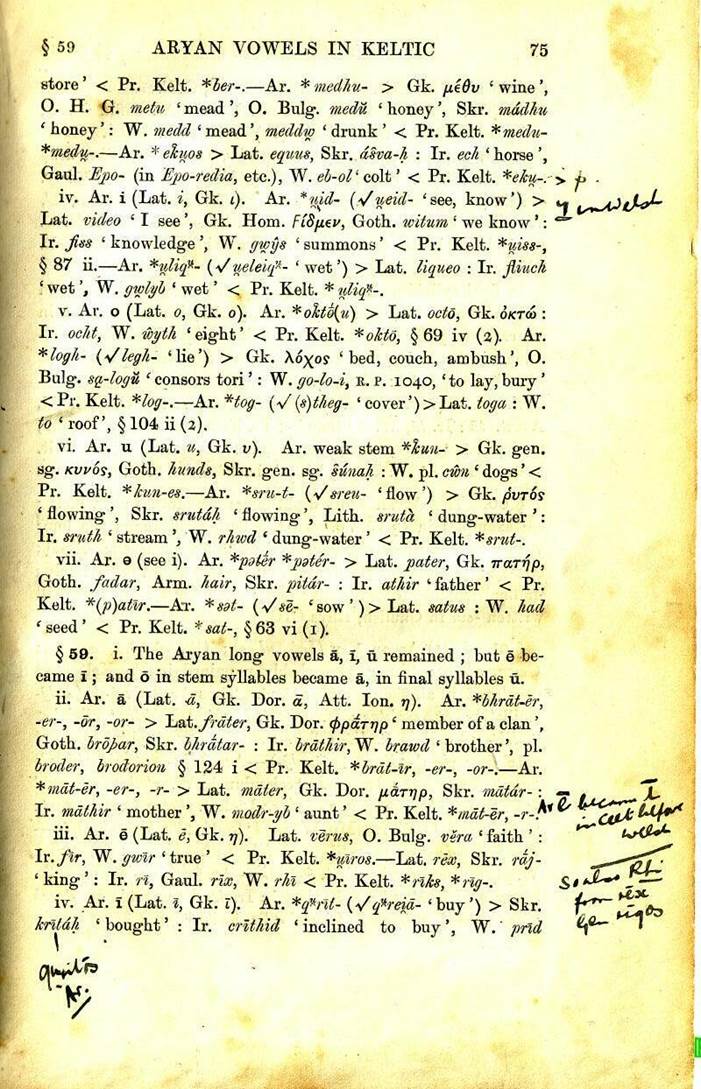 § 59 ARYAN VOWELS IN KELTIC 75
store’ < Pr. Kelt. *ber-.—Ar. *medhu- > Gk. μέθυ ‘wine’,
O. H. G. metu ‘mead’, O. Bulg. medŭ ‘honey’, Skr. mádhu
‘honey’: W. medd ‘mead’, meddw̯ ‘drunk’ < Pr. Kelt. *medu-
*medu̯-.—Ar. *ek̂u̯os > Lat. equus, Skr. áśva-ḥ : Ir. ech ‘horse’,
Gaul. Epo- (in Epo-redia, etc.), W. eb-ol ‘colt’ < Pr. Kelt. *eku̯-. > p.
iv. Ar. i (Lat. i, Gk. ι). Ar. *u̯id- (√u̯eid- ‘see, know’) >
in Welsh
Lat. video ‘I see’, Gk. Hom. ϝίδμεν, Goth. witum ‘we know’:
Ir. fiss ‘knowledge’, W. gwŷs ‘summons’ < Pr. Kelt. *u̯iss-,
§ 87 ii.—Ar. *u̯liqᵘ̯- (√u̯eleiqᵘ̯- ‘wet’) > Lat. liqueo : Ir. fliuch
‘wet’, W. gwlyb ‘wet’ < Pr. Kelt. *u̯liqᵘ̯-.
v. Ar. o (Lat. o, Gk. o). Ar. *ok̂tṓ(u) > Lat. octō, Gk. ὀκτώ :
Ir. ocht, W. ŵyth ‘eight’ < Pr. Kelt. *oktō, § 69 iv (2). Ar.
*logh- (√legh- ‘lie’) > Gk. λόχος ‘bed, couch, ambush’, O.
Bulg. są-logŭ ‘consors tori’: W. go-lo-i, R. P. 1040, ‘to lay, bury’
< Pr. Kelt. *log-.—Ar. *tog- (√(s)theg- ‘cover’) > Lat. toga : W.
to ‘roof’, § 104 ii (2).
vi. Ar. u (Lat. u, Gk. υ). Ar. weak stem *k̂un- > Gk. gen.
sg. κυνός, Goth. hunds, Skr. gen. sg. śúnaḥ : W. pl. cŵn ‘dogs’ <
Pr. Kelt. *kun-es.—Ar. *sru-t- (√sreu- ‘flow’) > Gk. ῥυτός
‘flowing’, Skr. srutáḥ ‘flowing’, Lith. srutà ‘dung-water’:
Ir. sruth ‘stream’, W. rhwd ‘dung-water’ < Pr. Kelt. *srut-.
vii. Ar. ə (see i). Ar. *pətḗr *pətér- > Lat. pater, Gk. πατήρ,
Goth. fadar, Arm. hair, Skr. pitár- : Ir. athir ‘father’ < Pr.
Kelt. *(p)atīr.—Ar. *sət- (√sē- ‘sow’) > Lat. satus : W. had
‘seed’ < Pr. Kelt. *sat-, § 63 vi (1).
§ 59. i. The Aryan long vowels ā, ī, ū remained ; but ē be-
came ī ; and ō in stem syllables became ā, in final syllables ū.
ii. Ar. ā (Lat. ā, Gk. Dor. ᾱ, Att. Ion. η). Ar. *bhrāt-ēr,
-er-, -ōr, -or- > Lat. frāter, Gk. Dor. φρᾱ́τηρ ‘member of a clan’,
Goth. brōþar, Skr. bhrā́tar- : Ir. brāthir, W. brawd ‘brother’, pl.
broder, brodorion § 124 i < Pr. Kelt. *brāt-īr, -er-, -or-.—Ar.
*māt-ēr, -er-, -r- > Lat. māter, Gk. Dor. μᾱ́τηρ, Skr. mātár- :
Ir. māthir ‘mother’, W. modr-yb ‘aunt’ < Pr. Kelt. *māt-ēr, -r-.
Ar ē became ī
in Celt before
Welsh
iii. Ar. ē (Lat. ē, Gk. η). Lat. vērus, O. Bulg. věra ‘faith’ :
Ir. fīr, W. gwīr ‘true’ < Pr. Kelt. *u̯īros.—Lat. rēx, Skr. rā́j-
‘king’: Ir. rī, Gaul. rīx, W. rhī < Pr. Kelt. *rīks, *rīg-.
So also Rhi
from rēx
Gen rigos
iv. Ar. ī (Lat. ī, Gk. ῑ). Ar. *qᵘ̯rīt- (√qᵘ̯rei̯ā- ‘buy’) > Skr.
krītáḥ ‘bought’ : Ir. crīthid ‘inclined to buy’, W. prīd
Ar.